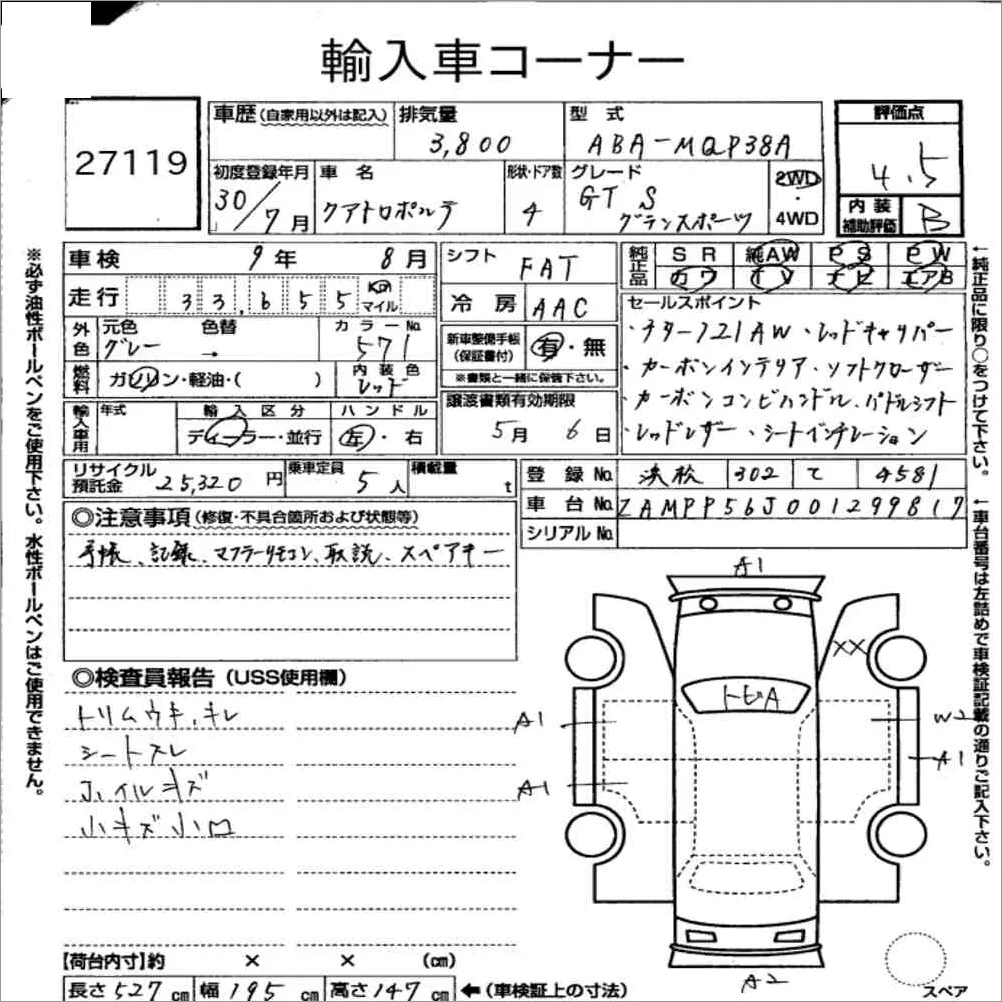 輸入車コーナー
27119
車歴 (自家用以外は記入)
排気量
3,800
型式
ABA-MQP38A
評価点
4.5
初度登録年月
30/7月
車名
クアトロポルテ
形状・ドア数
4
グレード
GT S
グランスポーツ
2WD
・
4WD
内装
補助評価
B
車検 9年 8月
シフト FAT
純正品
SR 純AW PS PW
カワ TV ナビ エアB
走行 33,655 Km
マイル
冷房 AAC
セールスポイント
外色
元色 色替
グレー →
カラーNo.
571
新車整備手帳
(保証書付)
有・無
※書類と一緒に保管下さい。
・チター/21AW・レッドキャリパー
・カーボンインテリア・ソフトクローザー
・カーボンコンビハンドル、パドルシフト
・レッドレザー、シートベンチレーション
燃料
ガソリン・軽油・( )
内装色
レッド
譲渡書類有効期限
5月 6日
輸入車用
年式
輸入区分
ディーラー・並行
ハンドル
左・右
リサイクル
預託金
25,320円
乗車定員
5人
積載量
t
登録No. 浜松 302 て 4581
車台No. ZAMPP56J001299817
シリアルNo.
◎注意事項 (修復・不具合箇所および状態等)
手帳、記録、マフラーリモコン、取説、スペアキー
◎検査員報告 (USS使用欄)
トリムウキ、キレ
シートスレ
ホイルキズ
小キズ小凹
A1
××
トビA
A1
W2
A1
A1
A2
スペア
【荷台内寸】約 × × (cm)
長さ527cm 幅195cm 高さ147cm ←(車検証上の寸法)
※必ず油性ボールペンをご使用下さい。水性ボールペンはご使用できません。
←純正品に限り○をつけて下さい。
←車台番号は左詰めで車検証記載の通りご記入下さい。